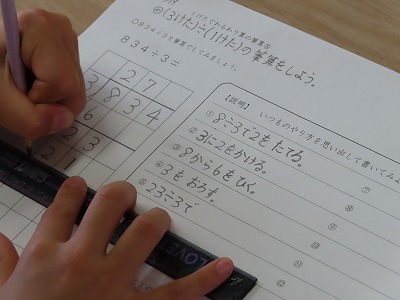 1けたでわるわり算の筆算②
㋱(3けた)÷(1けた)の筆算をしよう。
○834÷3を筆算でしてみましょう。
834÷3=
27
3834
6
23
21
【説明】 いつものやり方を思い出して書いてみよ
① 8÷3で2をたてる。
② 3に2をかける。
③ 8から6をひく。
④ 3をおろす。
⑤ 23÷3で
⑦
⑧
⑨
⑩
⑪
⑫
LOVE